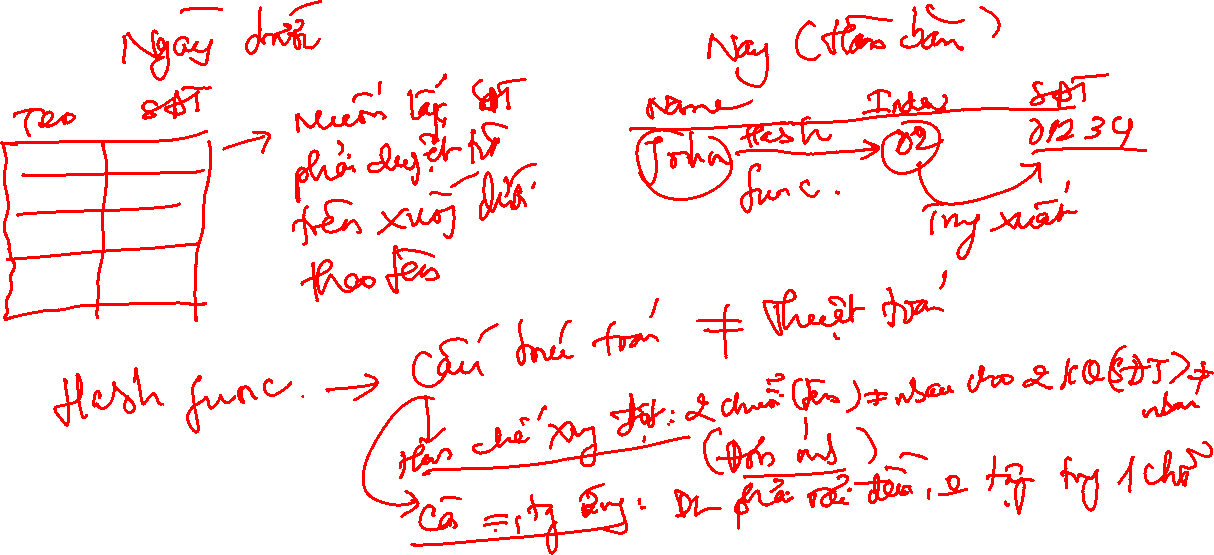 Ngày trước
Nay (Hàm băm)
Tên SĐT
Muốn lấy SĐT
phải duyệt từ
trên xuống dưới
theo tên
Name Index SĐT
John Hash func. 02 01234
Truy xuất
Hash func. → Cấu trúc toán ≠ Thuật toán
Hạn chế xung đột: 2 chuỗi (tên) ≠ nhau cho 2 KQ (SĐT) ≠ nhau
Cân =, : DL phải rải đều, 0 tập trung 1 chỗ